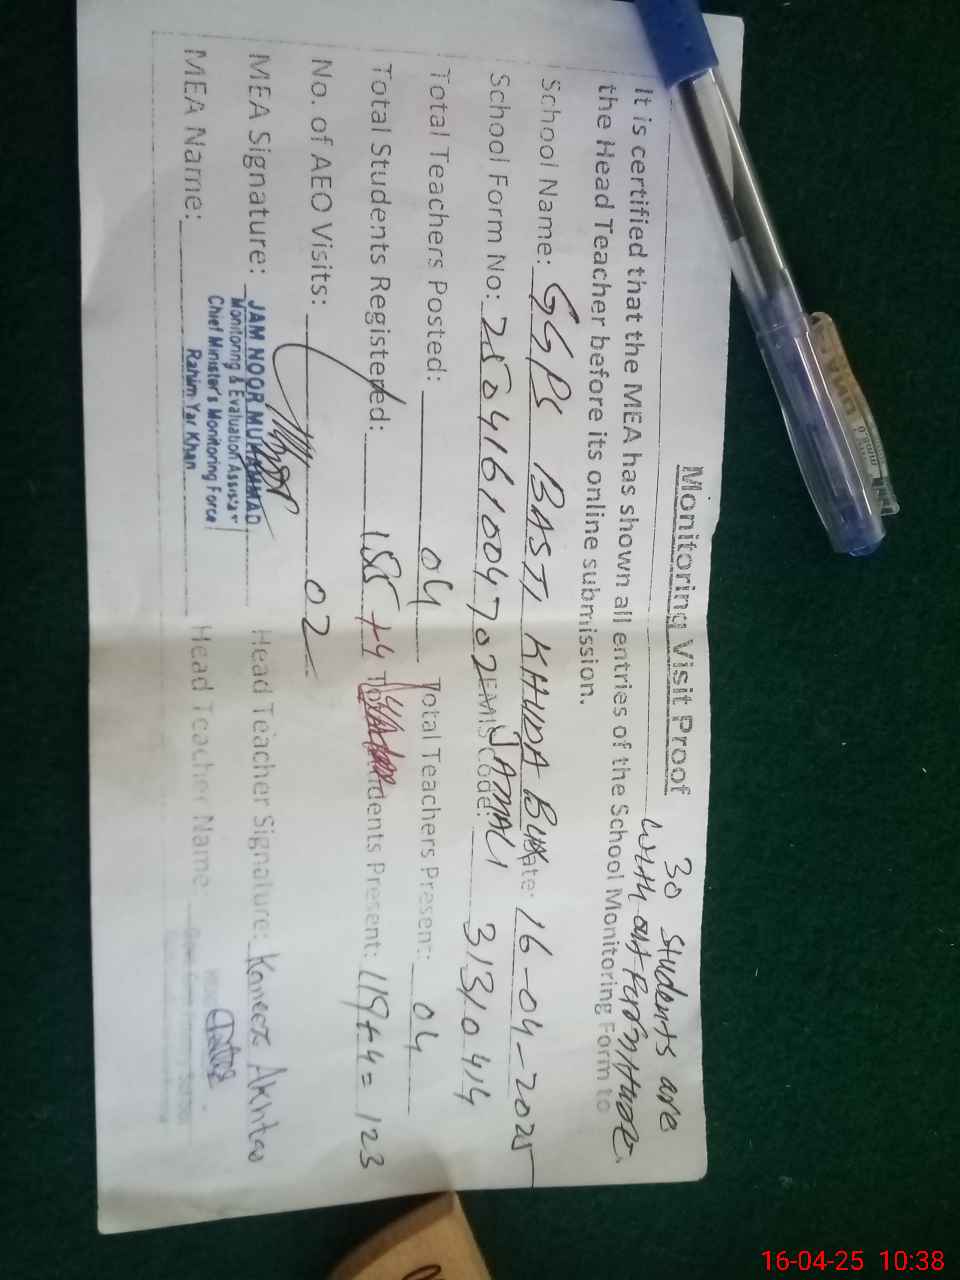 Monitoring Visit Proof
30 students are
with out Furniture.
It is certified that the MEA has shown all entries of the School Monitoring Form to
the Head Teacher before its online submission.
School Name: GGPS BASTI KHUDA Bux Date: 16-04-2025
JAMALI
School Form No: 2504161004702 EMIS Code: 31310414
Total Teachers Posted: 04 Total Teachers Present: 04
Total Students Registered: 155 + 4 Students Present: 119+4= 123
No. of AEO Visits: 02
MEA Signature: Head Teacher Signature: Kaneez Akhtar
JAM NOOR MUHAMMAD
Monitoring & Evaluation Assistant
Chief Minister's Monitoring Force
Rahim Yar Khan
MEA Name: Head Teacher Name:
16-04-25 10:38